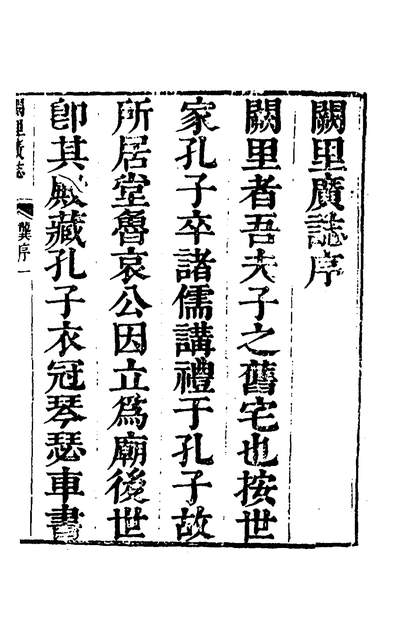 闕里廣誌序
闕里者吾夫子之舊宅也按世
家孔子卒諸儒講禮于孔子故
所居堂魯哀公因立爲廟後世
卽其殿藏孔子衣冠琴瑟車書
闕里廣誌
龔序
一